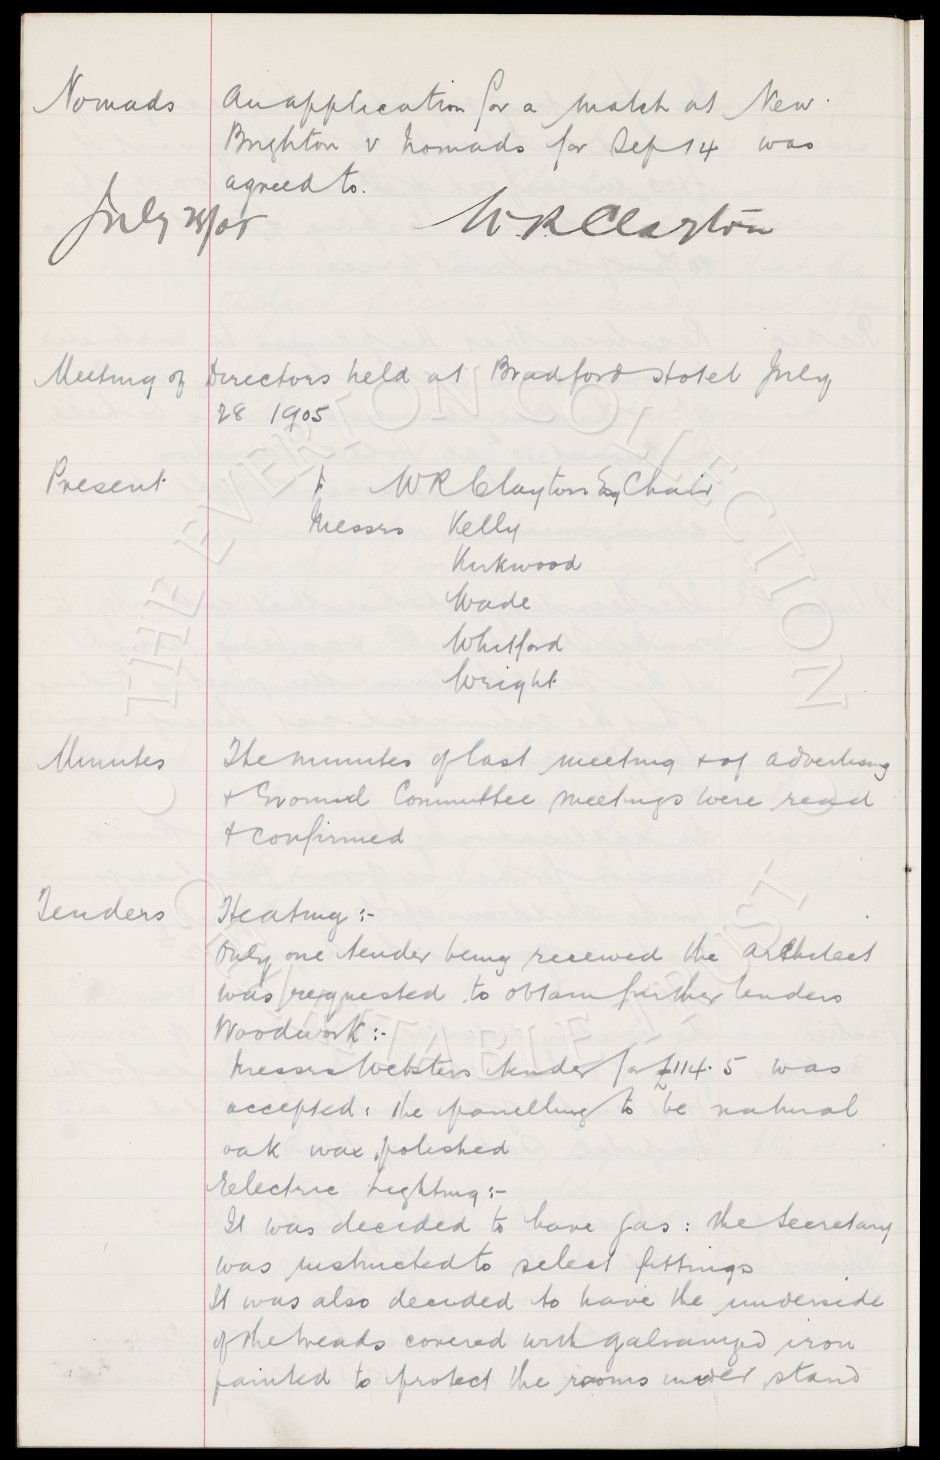 Nomads An application for a match at New
Brighton v Nomads for Sep 14 was
agreed to.
July 28/05 W R Clayton
Meeting of Directors held at Bradford Hotel July
28 1905
Present W R Clayton Esq Chair
Messrs Kelly
Kirkwood
Wade
Whitford
Wright
Minutes The minutes of last meeting & of advertising
& Ground Committee meetings were read
& confirmed
Tenders Heating :-
Only one tender being received the architect
was requested to obtain further tenders
Woodwork :-
Messrs Websters tender for £114. 5 was
accepted : the panelling to be natural
oak wax polished
Electric Lighting :-
It was decided to have gas : the Secretary
was instructed to select fittings
It was also decided to have the underside
of the treads covered with galvanized iron
painted to protect the rooms under stand
THE EVERTON COLLECTION
CHARITABLE TRUST